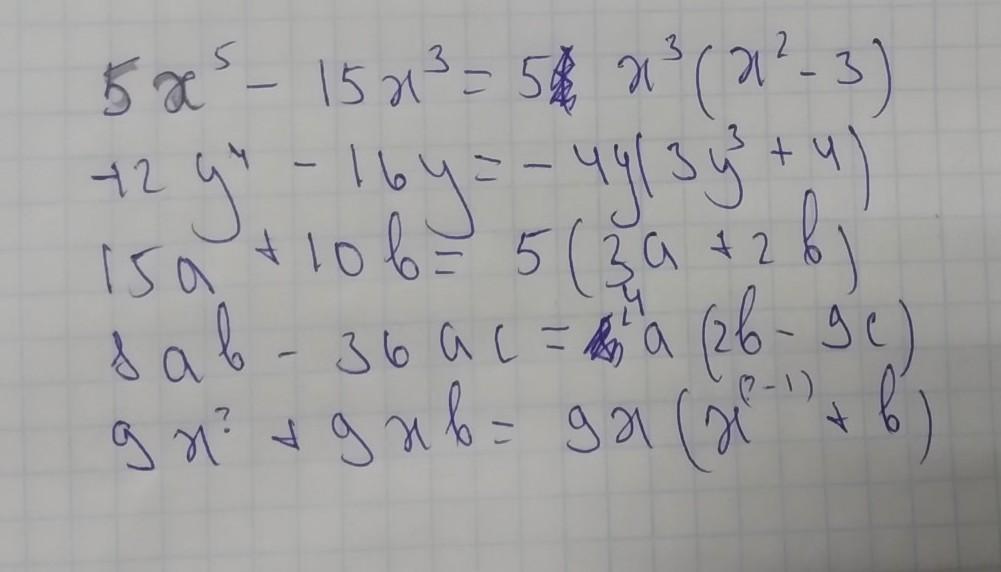 5x⁵ - 15x³ = 5 x³(x² - 3)
-12y⁴ - 16y = -4y(3y³ + 4)
15a + 10b = 5(3a + 2b)
8ab - 36ac = 4a(2b - 9c)
9x² + 9xb = 9x(x⁽ˀ⁻¹⁾ + b)